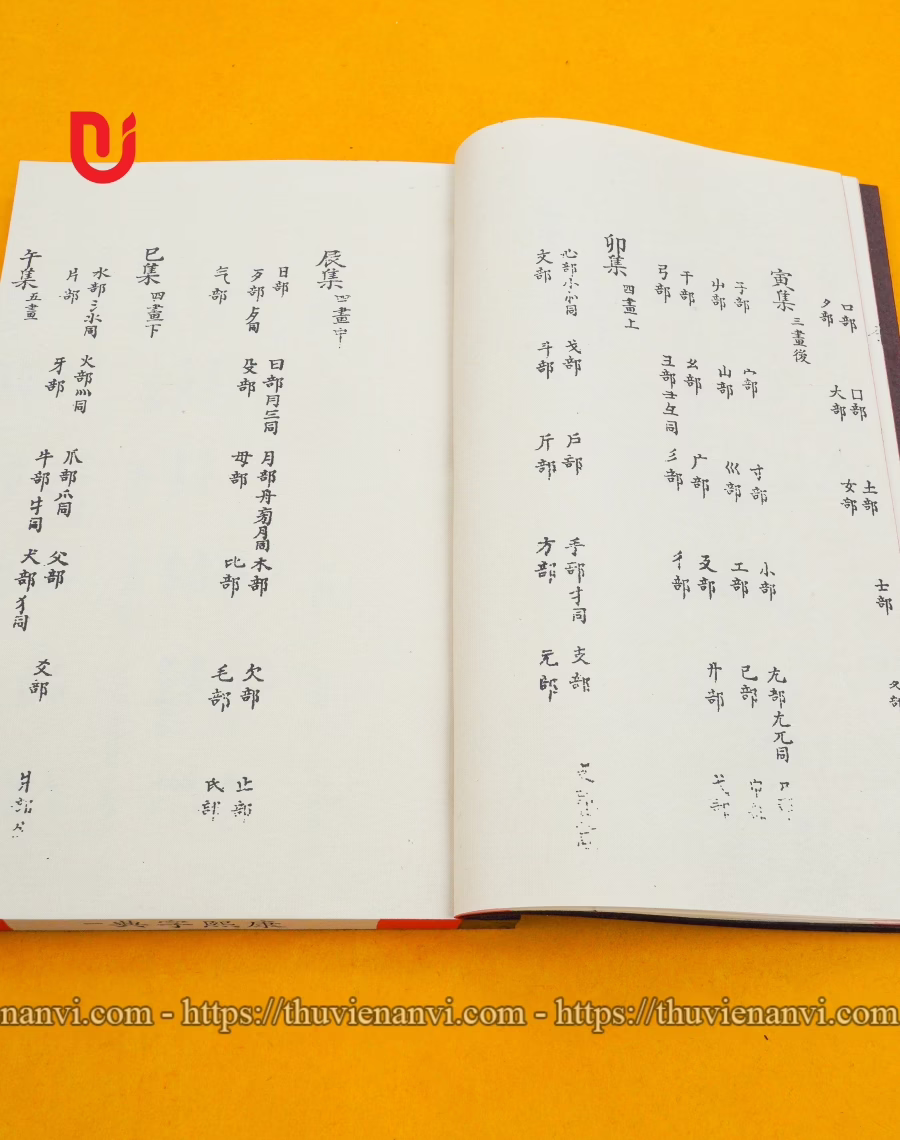 口部 囗部 土部 士部
夕部 大部 女部
寅集 三畫後
子部 宀部 寸部 小部 尢部尣兀同
屮部 山部 巛部 工部 己部
干部 幺部 广部 廴部 廾部
弓部 彐部彑同 彡部 彳部
卯集 四畫上
心部忄㣺同 戈部 戶部 手部扌同 支部
文部 斗部 斤部 方部 无部
辰集 四畫中
日部 曰部 月部 木部 欠部 止部
歹部歺同 殳部 毋部 比部 毛部 氏部
气部
巳集 四畫下
水部氵氺同 火部灬同 爪部爫同 父部 爻部 爿部
片部 牙部 牛部牜同 犬部犭同
午集 五畫
康熙字典一
nanvi.com - https://thuvienanvi.com - https://thuvienanvi.com